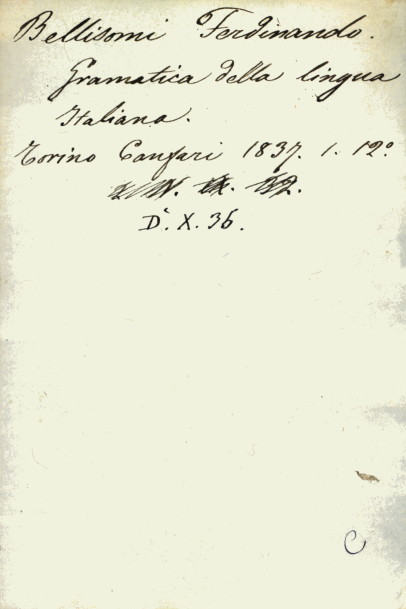 Bellisomi Ferdinando.
Gramatica della lingua
Italiana.
Torino Canfari 1837. 1. 12º
D. X. 36.
C